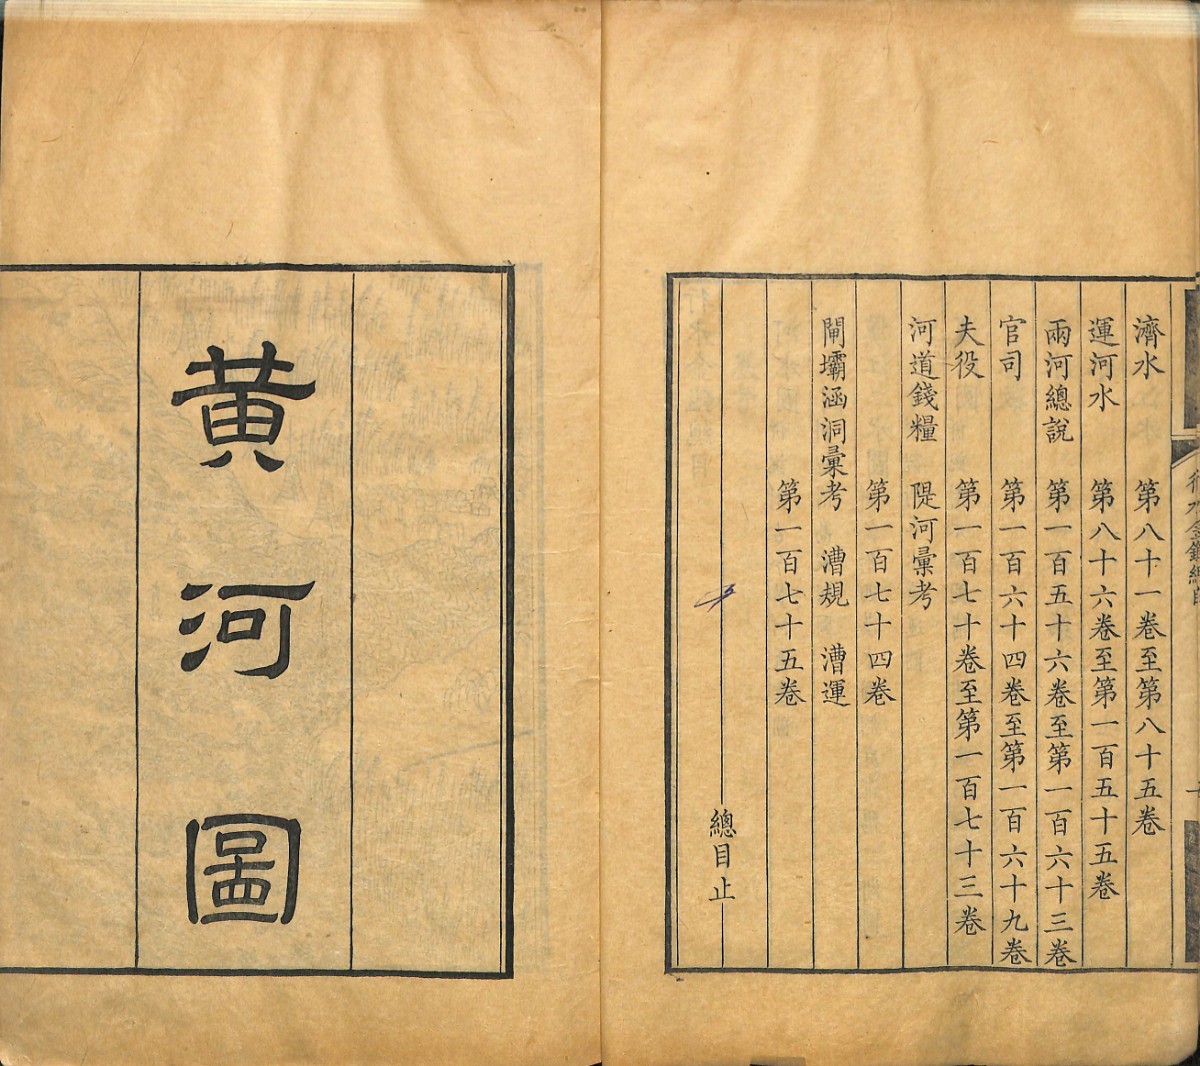 行水金鑑總目
濟水 第八十一卷至第八十五卷
運河水 第八十六卷至第一百五十五卷
兩河總說 第一百五十六卷至第一百六十三卷
官司 第一百六十四卷至第一百六十九卷
夫役 第一百七十卷至第一百七十三卷
河道錢糧 隄河彙考
第一百七十四卷
閘壩涵洞彙考 漕規 漕運
第一百七十五卷
總目止
黃河圖